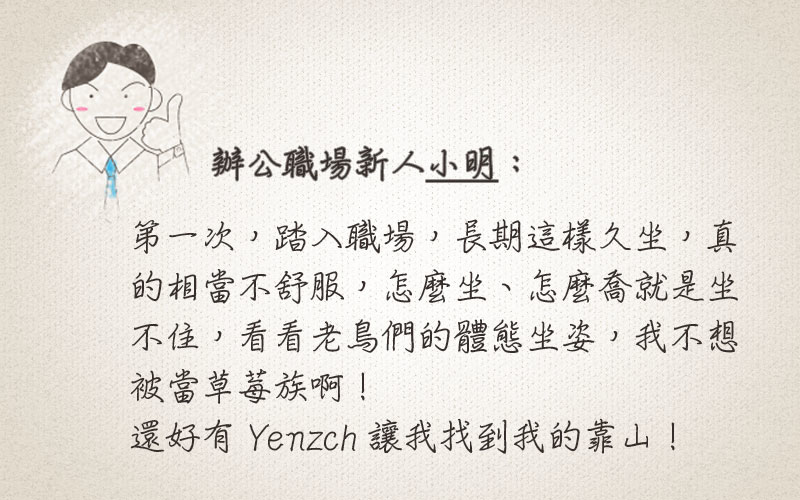 辦公職場新人小明：
第一次，踏入職場，長期這樣久坐，真
的相當不舒服，怎麼坐、怎麼喬就是坐
不住，看看老鳥們的體態坐姿，我不想
被當草莓族啊！
還好有 Yenzch 讓我找到我的靠山！